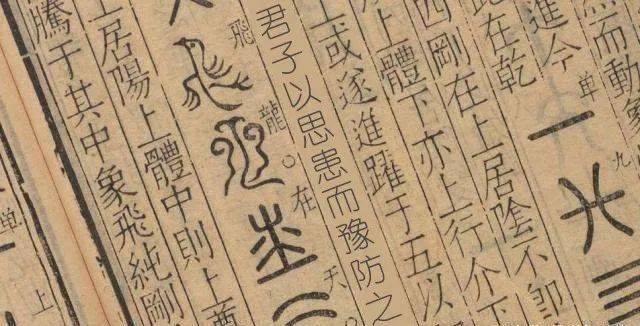 然而動象
進今
单 一
九
在乾
剛在上居陰不
上體下亦上行介下
上或遂進躍于五以
君子以思患而豫防之
飛 龍 在 天
上居陽上體中則上
騰于其中象飛純剛
单
上